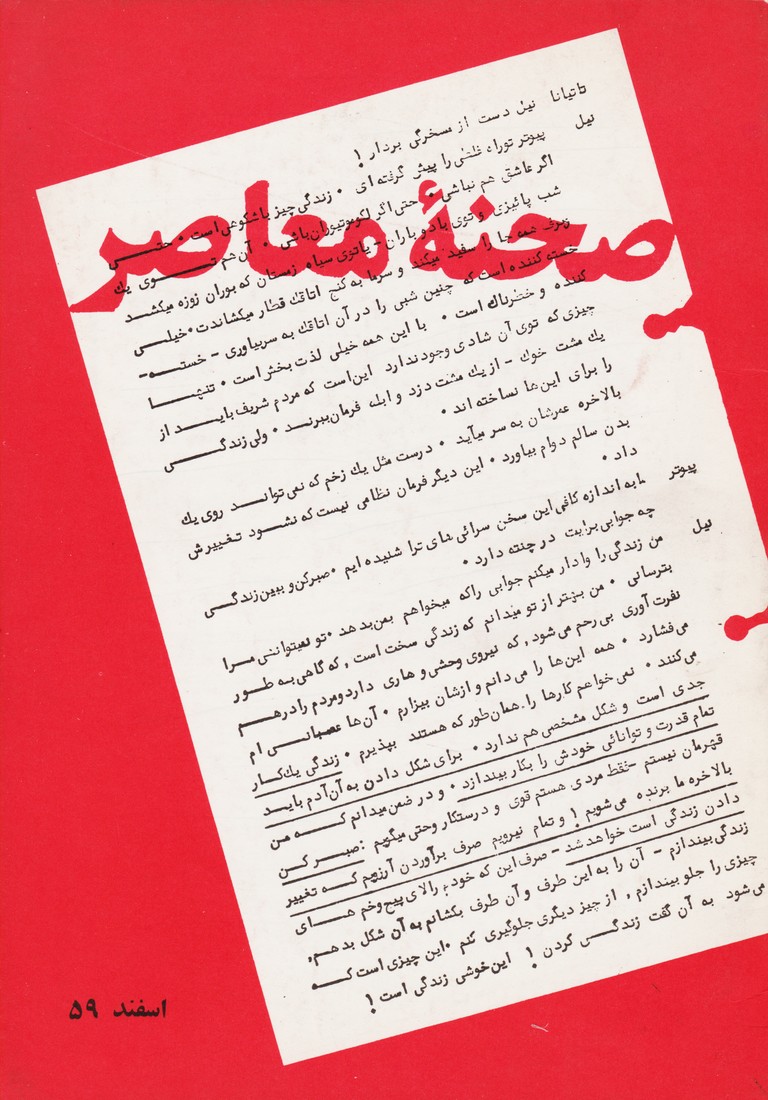 تاتیانا نیل دست از مسخرگی بردار !
نیل پیوتر توراه غلطی را پیش گرفته ای . زندگی چیز باشکوهی است . حتی
اگر عاشق هم نباشی . حتی اگر لکوموتیوران باشی . آن هم توی یک
شب پائیزی و توی باد و باران - یا توی سیاه زمستان که بوران زوزه میکشد
صحنهٔ معاصر
برف همه جا را سفید میکند و سرما به کنج اتاقک قطار میکشاندت . خیلی
خسته کننده است که چنین شبی را در آن اتاقک به سربیاوری - خسته -
کننده و خطرناک است . با این همه خیلی لذت بخش است . تنها
چیزی که توی آن شادی وجود ندارد این است که مردم شریف باید از
یک مشت خوک - از یک مشت دزد و ابله فرمان ببرند . ولی زندگی
را برای این ها نساخته اند .
بالاخره عمرشان به سر میآید . درست مثل یک زخم که نمی تواند روی یک
بدن سالم دوام بیاورد . این دیگر فرمان نظامی نیست که نشود تغییرش
داد .
پیوتر ما به اندازه کافی این سخن سرائی های ترا شنیده ایم . صبرکن و ببین زندگی
چه جوابی برایت در چنته دارد .
نیل من زندگی را وادار میکنم جوابی را که میخواهم بمن بدهد . تو نمیتوانی مرا
بترسانی . من بهتر از تو میدانم که زندگی سخت است , که گاهی به طور
نفرت آوری بی رحم می شود , که نیروی وحشی و هاری دارد و مردم را درهم
می فشارد . همه این ها را می دانم و ازشان بیزارم . آن ها عصبانی ام
می کنند . نمی خواهم کارها را همان طور که هستند بپذیرم . زندگی یک کار
جدی است و شکل مشخصی هم ندارد . برای شکل دادن به آن آدم باید
تمام قدرت و توانائی خودش را بکار بیندازد . و در ضمن میدانم که من
قهرمان نیستم - فقط مردی هستم قوی و درستکار وحتی میگویم : صبر کن
بالاخره ما برنده می شویم ! و تمام نیرویم صرف برآوردن آرزویم که تغییر
دادن زندگی است خواهد شد - صرف این که خودم را لای پیچ وخم های
زندگی بیندازم - آن را به این طرف و آن طرف بکشانم به آن شکل بدهم ,
چیزی را جلو بیندازم , از چیز دیگری جلوگیری کنم . این چیزی است که
می شود به آن گفت زندگی کردن ! این خوشی زندگی است !
اسفند ۵۹